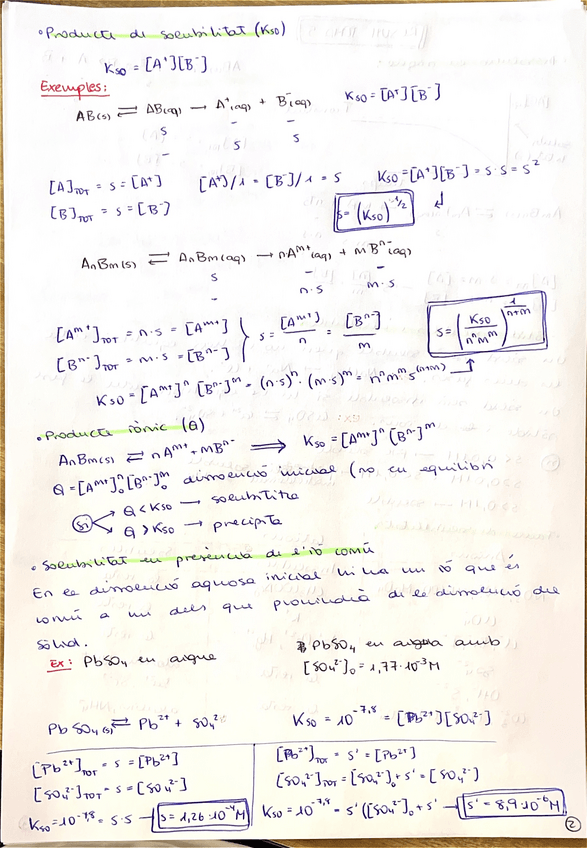 • Producte de solubilitat (Kso)
Kso = [A⁺][B⁻]
Exemples:
AB(s) ⇌ AB(aq) → A⁺(aq) + B⁻(aq)    Kso = [A⁺][B⁻]
s – –
– s s
[A]TOT = s = [A⁺]    [A⁺]/1 = [B⁻]/1 = s    Kso = [A⁺][B⁻] = s·s = s²
[B]TOT = s = [B⁻]    s = (Kso)^1/2
AnBm(s) ⇌ AnBm(aq) → nA^m+(aq) + mB^n-(aq)
s – –
– n·s m·s
[A^m+]TOT = n·s = [A^m+]    s = [A^m+]/n = [B^n-]/m    s = (Kso/n^n m^m)^1/n+m
[B^n-]TOT = m·s = [B^n-]
Kso = [A^m+]^n [B^n-]^m = (n·s)^n · (m·s)^m = n^n m^m s^(n+m)
• Producte iònic (Q)
AnBm(s) ⇌ nA^m+ + mB^n- ⟹ Kso = [A^m+]^n [B^n-]^m
Q = [A^m+]₀^n [B^n-]₀^m dissolució inicial (no en equilibri
Si Q < Kso → solubilitza
Q > Kso → precipita
• Solubilitat en presència de l'ió comú
En la dissolució aquosa inicial hi ha un ió que és
comú a un dels que provindrà de la dissolució del
sòlid.
Ex: PbSO₄ en aigua    PbSO₄ en aigua amb
[SO₄²⁻]₀ = 1,77·10⁻³M
PbSO₄(s) ⇌ Pb²⁺ + SO₄²⁻    Kso = 10^-7,8 = [Pb²⁺][SO₄²⁻]
[Pb²⁺]TOT = s = [Pb²⁺]    [Pb²⁺]TOT = s' = [Pb²⁺]
[SO₄²⁻]TOT = s = [SO₄²⁻]    [SO₄²⁻]TOT = [SO₄²⁻]₀ + s' = [SO₄²⁻]
Kso = 10^-7,8 = s·s → s = 1,26·10⁻⁴M    Kso = 10^-7,8 = s'([SO₄²⁻]₀ + s' → s' = 8,9·10⁻⁶M
2